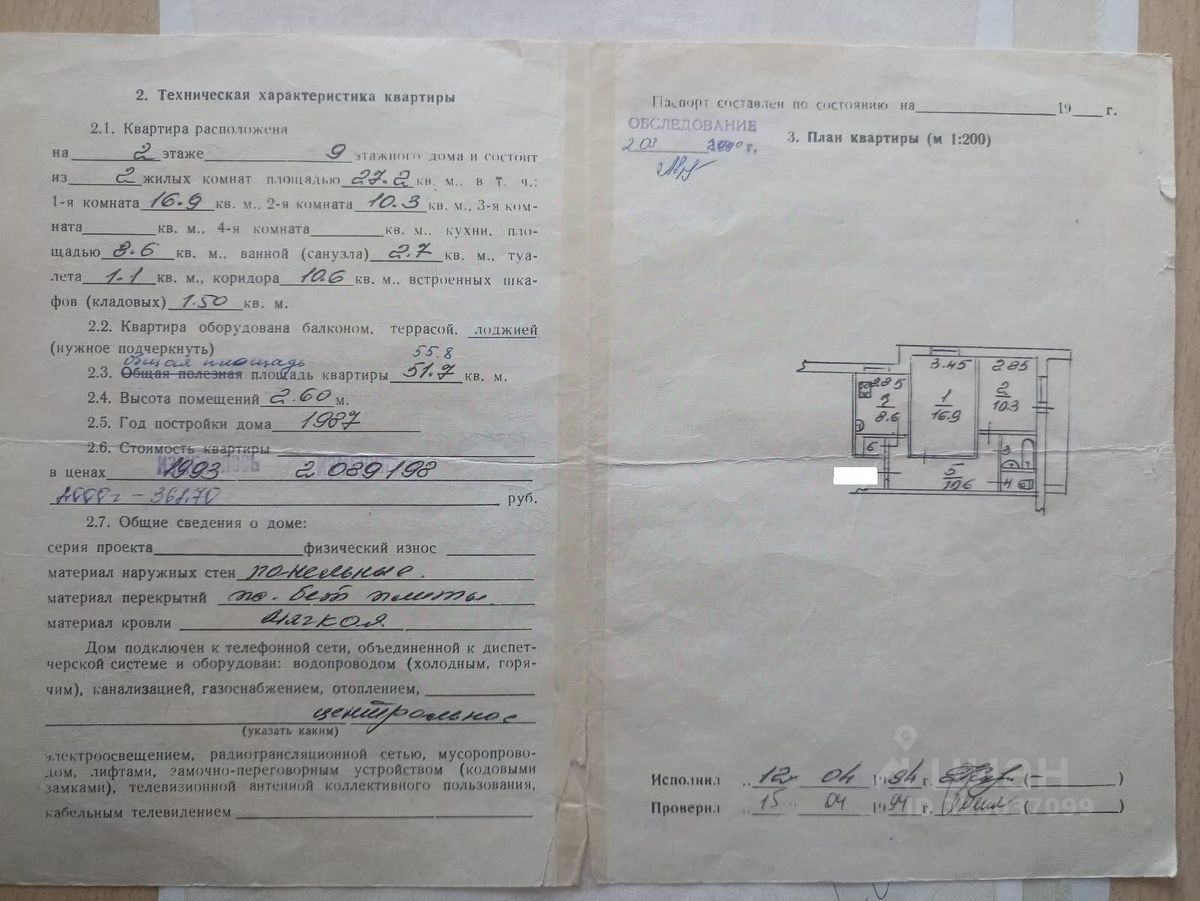 2. Техническая характеристика квартиры
2.1. Квартира расположена
на 2 этаже 9 этажного дома и состоит
из 2 жилых комнат площадью 27.2 кв. м., в т. ч.:
1-я комната 16.9 кв. м., 2-я комната 10.3 кв. м., 3-я ком-
ната кв. м., 4-я комната кв. м., кухни, пло-
щадью 8.6 кв. м., ванной (санузла) 2.7 кв. м., туа-
лета 1.1 кв. м., коридора 10.6 кв. м., встроенных шка-
фов (кладовых) 1.50 кв. м.
2.2. Квартира оборудована балконом, террасой, лоджией
(нужное подчеркнуть) 55.8
Общая площадь
2.3. Общая полезная площадь квартиры 51.7 кв. м.
2.4. Высота помещений 2.60 м.
2.5. Год постройки дома 1987
2.6. Стоимость квартиры
в ценах 1993 2 089 198
2000 г - 36270 руб.
2.7. Общие сведения о доме:
серия проекта физический износ
материал наружных стен панельные.
материал перекрытий плиты
материал кровли мягкая
Дом подключен к телефонной сети, объединенной к диспет-
черской системе и оборудован: водопроводом (холодным, горя-
чим), канализацией, газоснабжением, отоплением,
центральное
(указать каким)
электроосвещением, радиотрансляционной сетью, мусоропрово-
дом, лифтами, замочно-переговорным устройством (кодовыми
замками), телевизионной антенной коллективного пользования,
кабельным телевидением
Паспорт составлен по состоянию на 19 г.
ОБСЛЕДОВАНИЕ
2.03. г.
3. План квартиры (м 1:200)
3.45 2.85
2.85
1 2
8.6 16.9 10.3
6 3
5 4
10.6
Исполнил „12„ 04 1994 г. ( )
Проверил „15„ 04 1994 г. ( )
циан